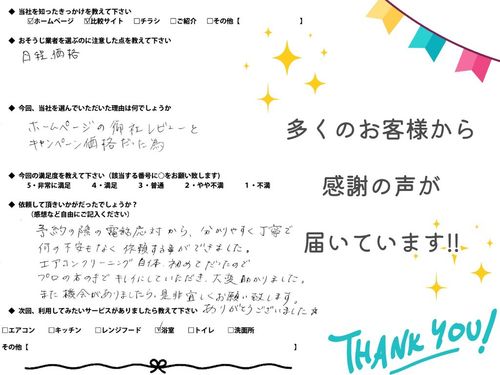 ◆ 当社を知ったきっかけを教えて下さい
☑ホームページ ☑比較サイト □チラシ □ご紹介 □その他【
◆ おそうじ業者を選ぶのに注意した点を教えて下さい
日程、価格
◆ 今回、当社を選んでいただいた理由は何でしょうか
ホームページの御社レビューと
キャンペーン価格だった為
◆ 今回の満足度を教えて下さい（該当する番号に○をお願い致します）
5・非常に満足 4・満足 3・普通 2・やや不満 1・不満
◆ 依頼して頂きいかがだったでしょうか？
（感想など自由にご記入ください）
予約の際の電話応対から、分かりやすく丁寧で
何の不安もなく依頼する事ができました。
エアコンクリーニング自体、初めてだったので
プロの方の手でキレイにしていただき、大変助かりました。
また機会がありましたら、是非宜しくお願い致します。
ありがとうございました
◆ 次回、利用してみたいサービスがありましたら教えて下さい
□エアコン □キッチン □レンジフード ☑浴室 □トイレ □洗面所
その他【 】
多くのお客様から
感謝の声が
届いています!!
THANK YOU!